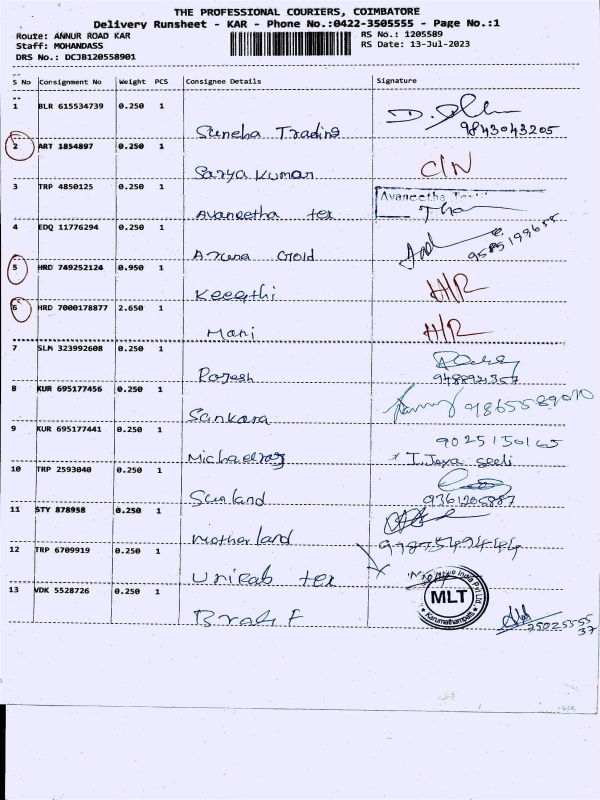 THE PROFESSIONAL COURIERS, COIMBATORE
Delivery Runsheet - KAR - Phone No.:0422-3505555 - Page No.:1
Route: ANNUR ROAD KAR
Staff: MOHANDASS
DRS No.: DCJB120558901
RS No.: 1205589
RS Date: 13-Jul-2023
S No Consignment No Weight PCS Consignee Details Signature
1 BLR 615534739 0.250 1
Suneha Trading 9843043205
2 ART 1854897 0.250 1
Sarya Kumar C/N
3 TRP 4850125 0.250 1
Avaneetha tex Avaneetha
4 EDQ 11776294 0.250 1
Gold
5 HRD 749252124 0.950 1
Keerthi H/R
6 HRD 7000178877 2.650 1
Mani H/R
7 SLM 323992608 0.250 1
Rajesh
8 KUR 695177456 0.250 1
Sankara
9 KUR 695177441 0.250 1
9025150165
Michaelraj
10 TRP 2593040 0.250 1
Sunland
11 STY 878958 0.250 1
Motherland
12 TRP 6709919 0.250 1
tex
13 VDK 5528726 0.250 1
MLT